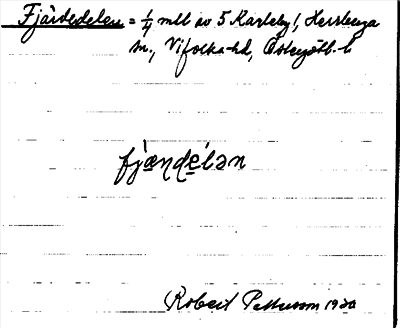 Fjärdedelen = 1/4 mtl av 5 Karleby, Herrberga
sn., Vifolka hd, Östergötl. l.
fjæ̀ndẹ́lən
Robert Pettersson 1930